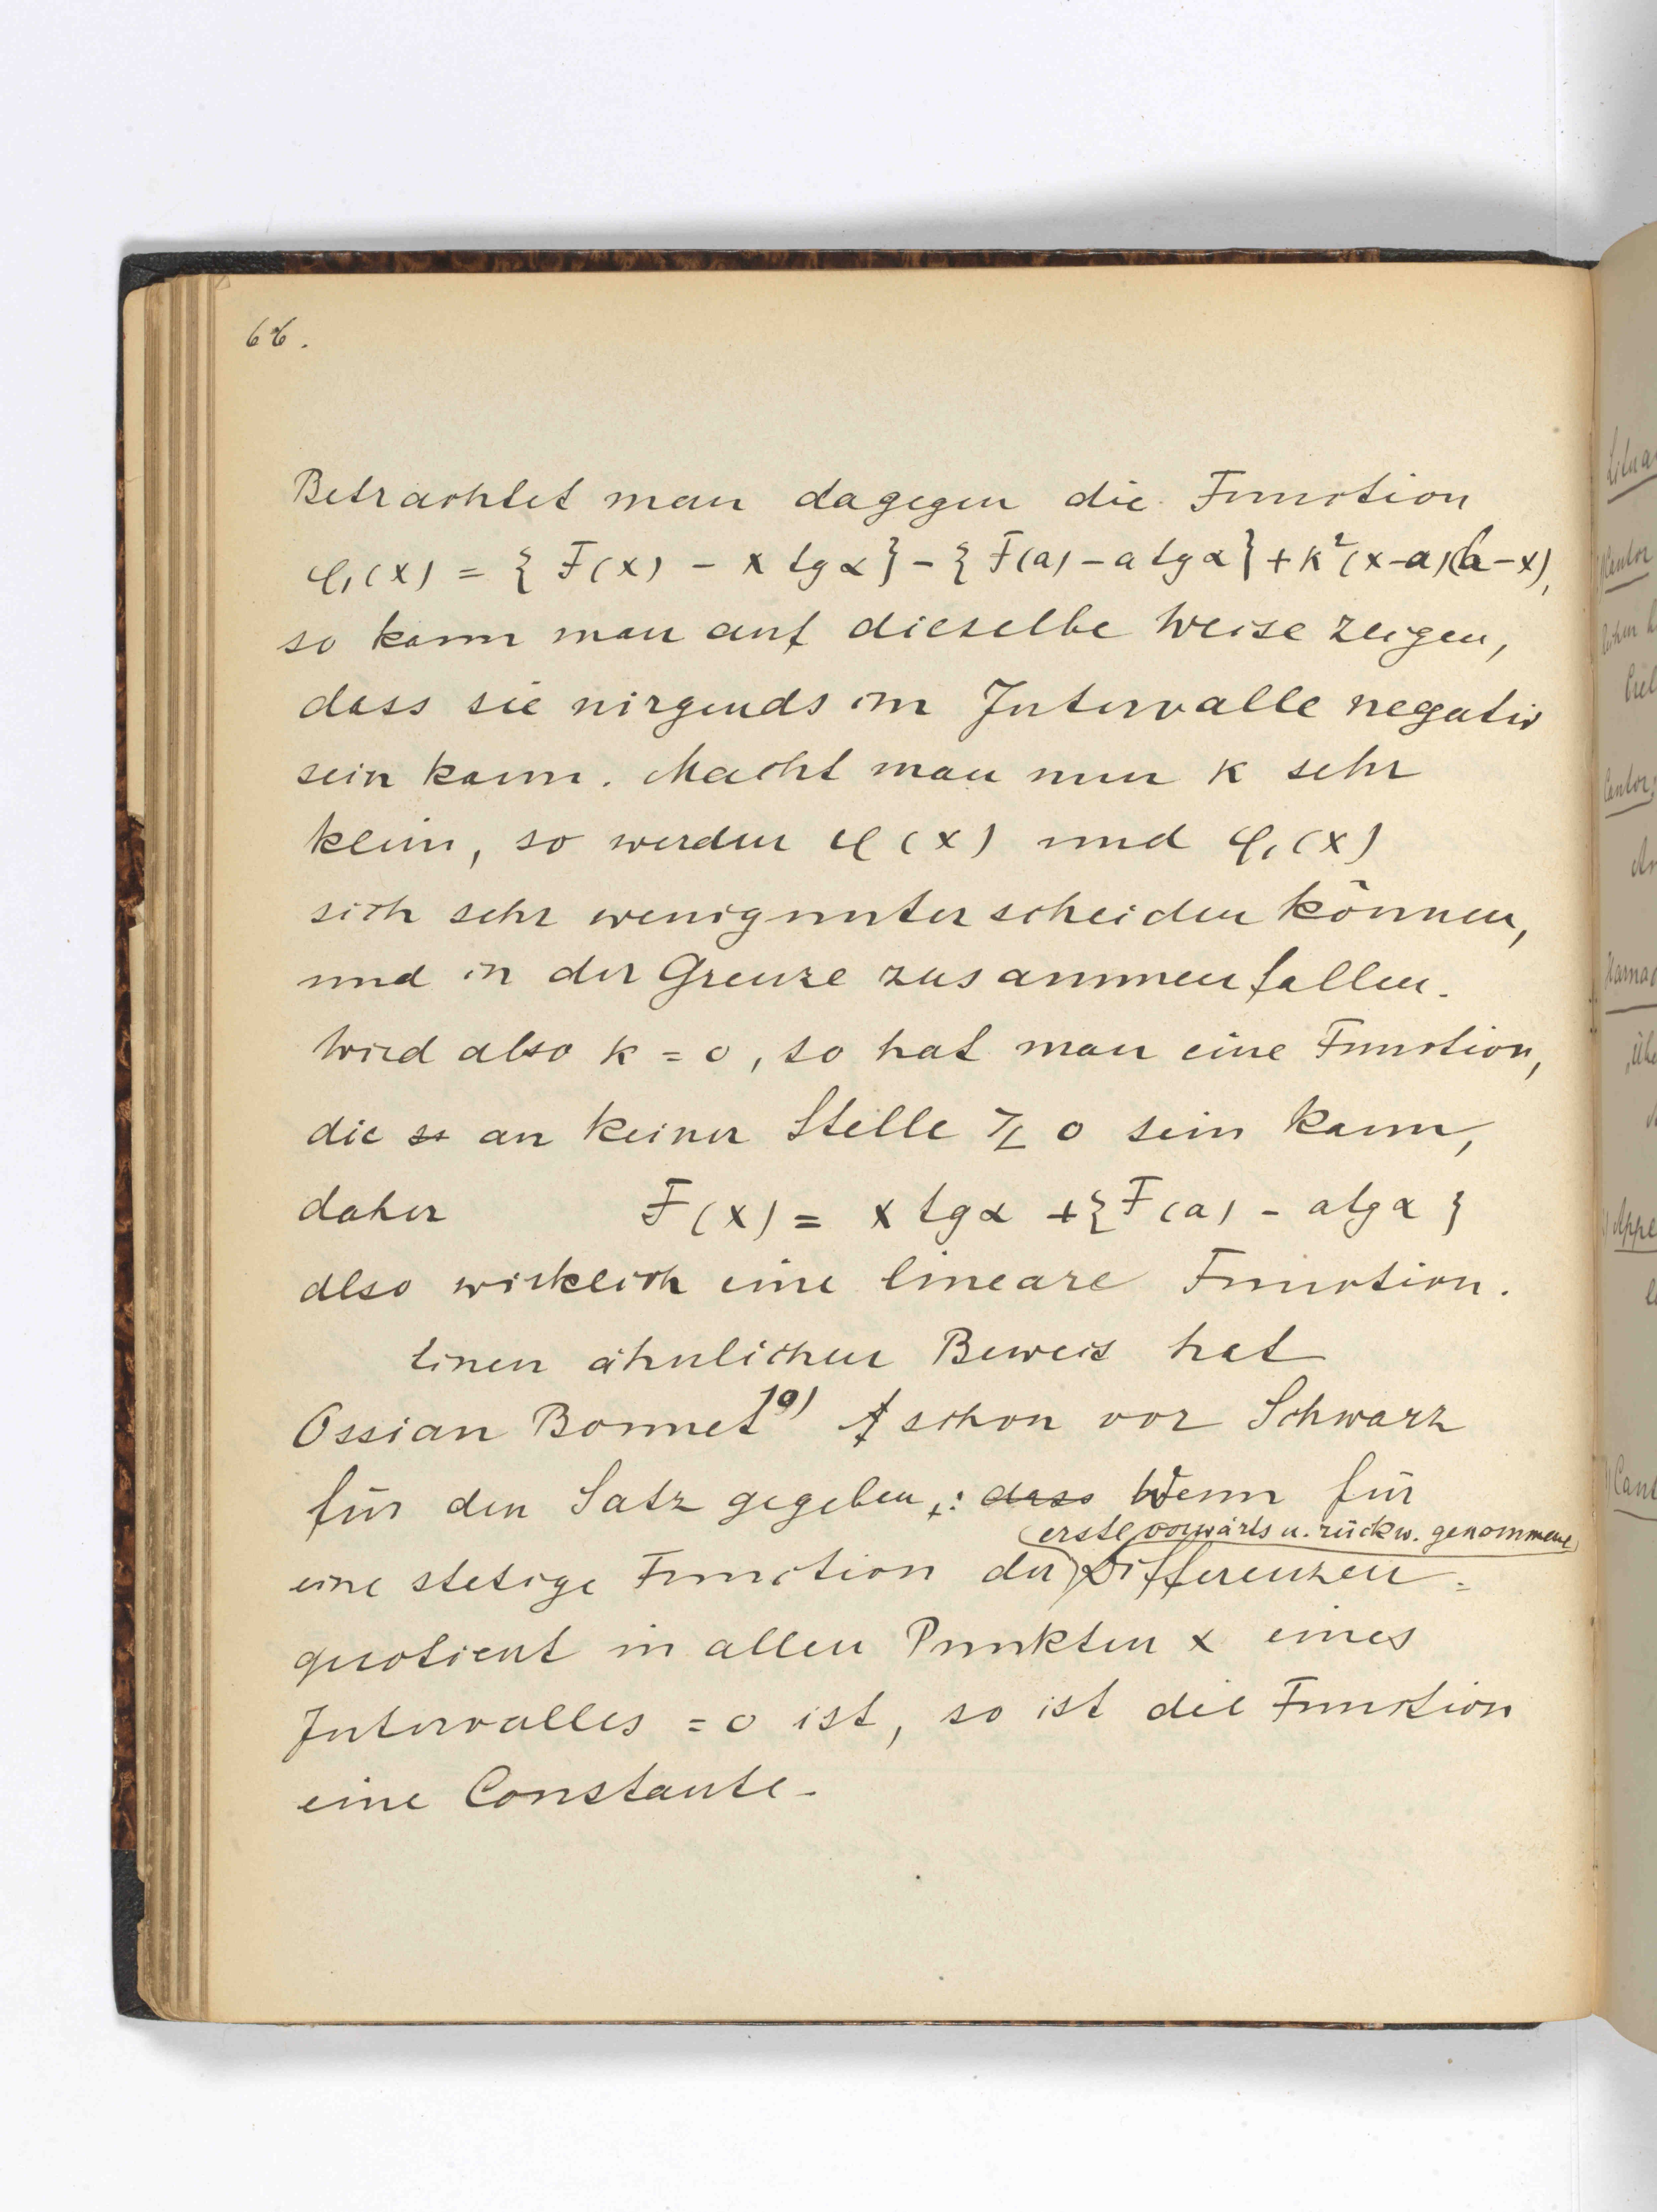 66.
Betrachtet man dagegen die Function
φ₁(x) = { F(x) − x tg α } − { F(a) − a tg α } + k²(x−a)(b−x),
so kann man auf dieselbe Weise zeigen,
dass sie nirgends im Intervalle negativ
sein kann. Macht man nun k sehr
klein, so werden φ(x) und φ₁(x)
sich sehr wenig unterscheiden können,
und in der Grenze zusammenfallen.
Wird also k = 0, so hat man eine Function,
die an keiner Stelle ≷ 0 sein kann,
daher F(x) = x tg α + { F(a) − a tg α }
also wirklich eine lineare Function.
Einen ähnlichen Beweis hat
Ossian Bonnet schon vor Schwarz
für den Satz gegeben: dass Wenn für
erste vorwärts u. rückw. genommene
eine stetige Function der Differenzen=
quotient in allen Punkten x eines
Intervalles = 0 ist, so ist die Function
eine Constante.
Cantor
Cantor,